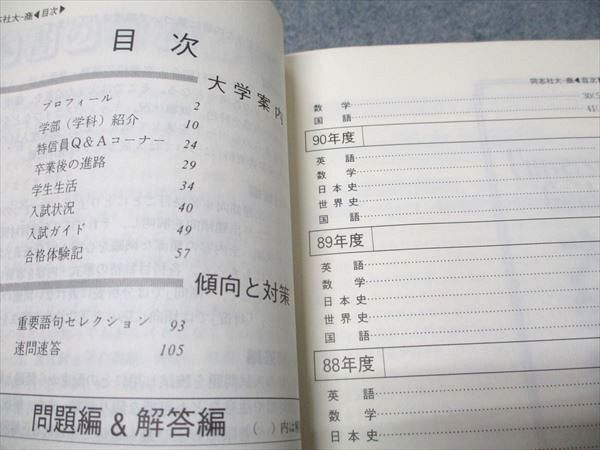 志社大-商◀目次▶
目次
大学案内
プロフィール 2
学部（学科）紹介 10
特信員Q&Aコーナー 24
卒業後の進路 29
学生生活 34
入試状況 40
入試ガイド 49
合格体験記 57
傾向と対策
重要語句セレクション 93
速問速答 105
問題編 & 解答編
（ ）内は解
同志社大-商◀目次▶
数学
国語
90年度
英語
数学
日本史
世界史
国語
89年度
英語
数学
日本史
世界史
国語
88年度
英語
数学
日本史